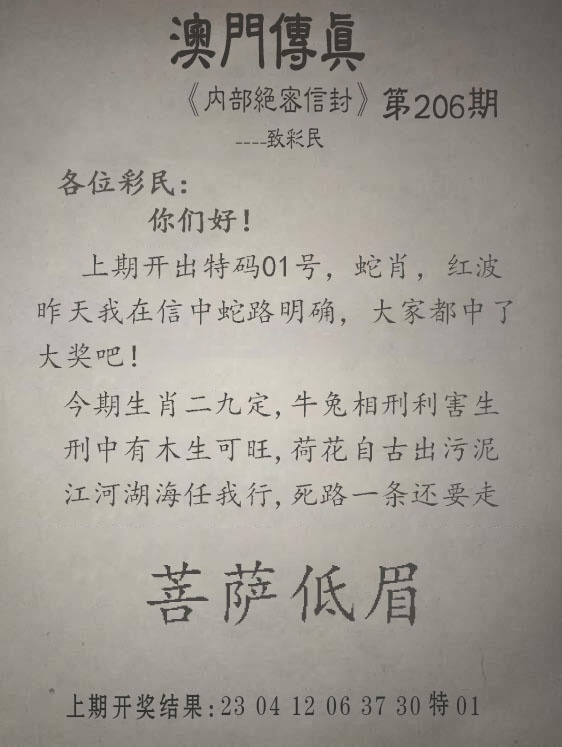 澳門傳眞
《内部絕密信封》第206期
----致彩民
各位彩民：
你们好！
上期开出特码01号，蛇肖，红波
昨天我在信中蛇路明确，大家都中了
大奖吧！
今期生肖二九定,牛兔相刑利害生
刑中有木生可旺,荷花自古出污泥
江河湖海任我行,死路一条还要走
菩萨低眉
上期开奖结果:23 04 12 06 37 30 特 01